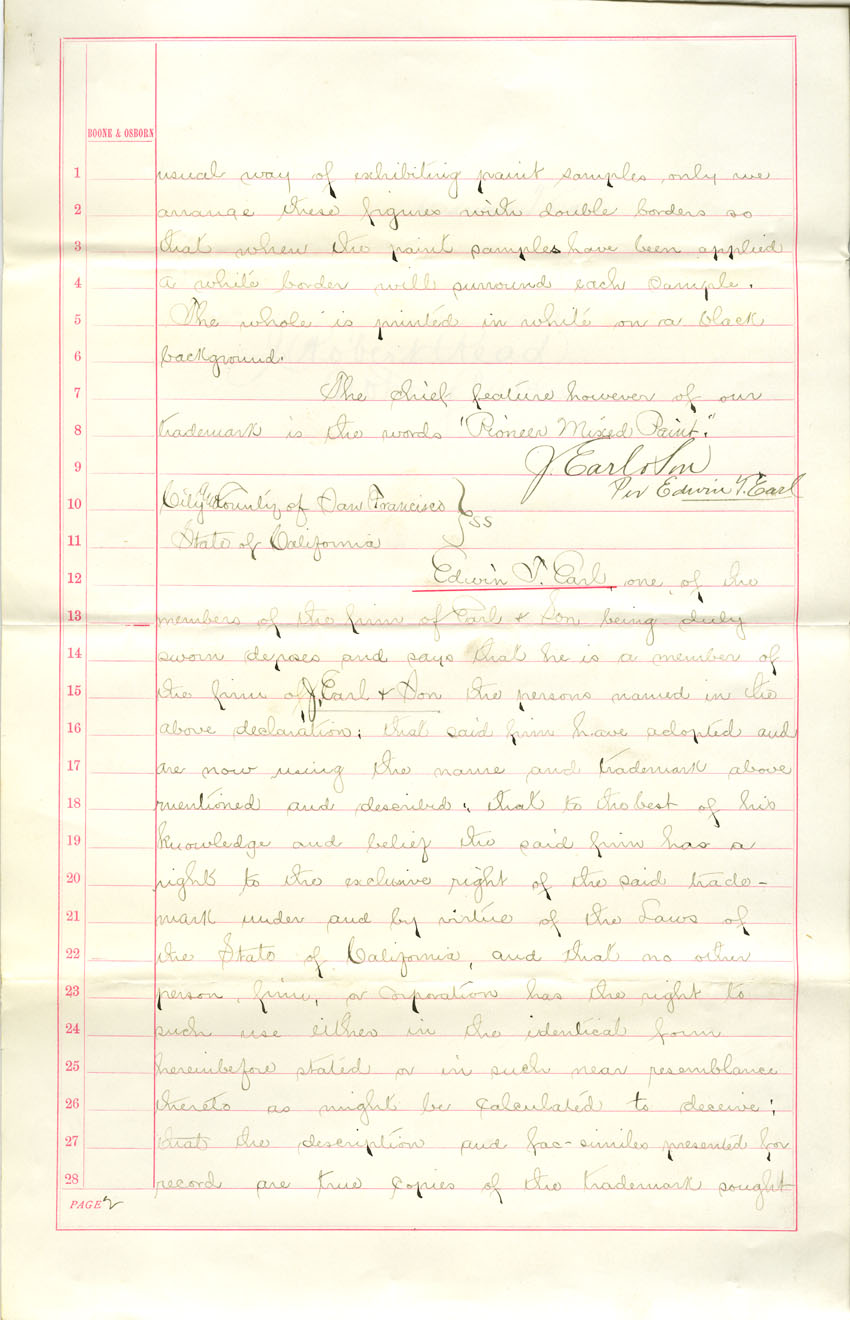 BOONE & OSBORN
1 usual way of exhibiting paint samples only we
2 arrange these figures with double borders so
3 that when the paint samples have been applied
4 a white border will surround each sample.
5 The whole is printed in white on a black
6 background.
7 The chief feature however of our
8 trademark is the words "Pioneer Mixed Paint".
9 J. Earl & Son
Per Edwin T. Earl
10 City & County of San Francisco
ss
11 State of California
12 Edwin T. Earl, one of the
13 members of the firm of Earl & Son being duly
14 sworn deposes and says that he is a member of
15 the firm of J. Earl & Son the persons named in the
16 above declaration; that said firm have adopted and
17 are now using the name and trademark above
18 mentioned and described; that to the best of his
19 knowledge and belief the said firm has a
20 right to the exclusive right of the said trade-
21 mark under and by virtue of the Laws of
22 the State of California, and that no other
23 person, firm, or corporation has the right to
24 such use either in the identical form
25 hereinbefore stated or in such near resemblance
26 thereto as might be calculated to deceive;
27 that the description and fac-similes presented for
28 record are true copies of the trademark sought
PAGE 2